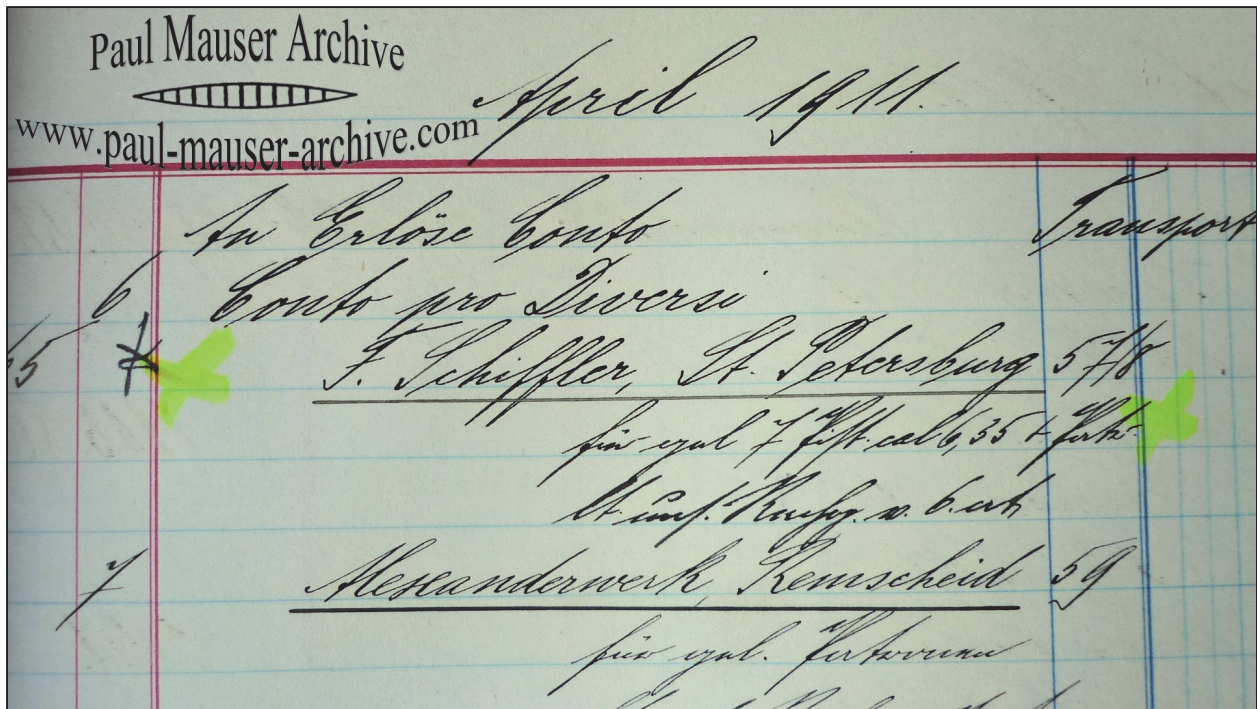 Paul Mauser Archive
www.paul-mauser-archive.com
April 1911.
An Erlöse Conto Transport
6 Conto pro Diversi
F. Schiffler, St. Petersburg 57/8
für gel 7 Pist. cal 6,35 + Patr.
lt. uns. v. 6. crt
7 Alexanderwerk, Remscheid 59
für gel. Patronen